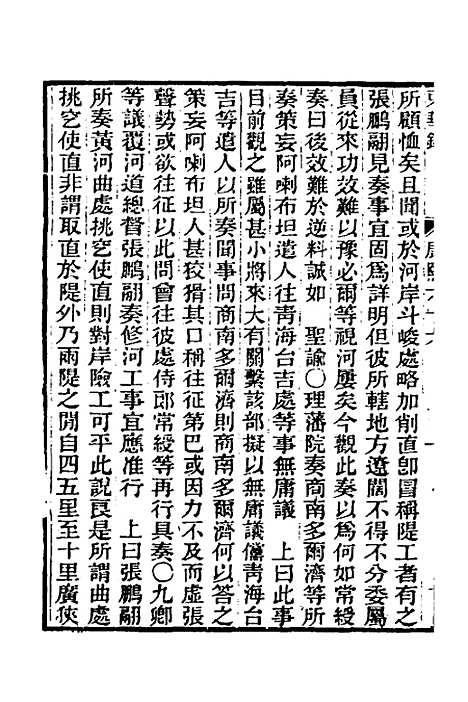 所顧恤矣且聞或於河岸斗峻處略加削直卽圖稱隄工者有之
張鵬翮見奏事宜固爲詳明但彼所轄地方遼闊不得不分委屬
員從來功效難以豫必爾等視河屢矣今觀此奏以爲何如常綬
奏曰後效難於逆料誠如　聖諭○理藩院奏商南多爾濟等所
奏策妄阿喇布坦遣人往靑海台吉處等事無庸議　上曰此事
目前觀之雖屬甚小將來大有關繫該部擬以無庸議儻靑海台
吉等遣人以所奏聞事問商南多爾濟則商南多爾濟何以答之
策妄阿喇布坦人甚狡猾其口稱往征第巴或因力不及而虛張
聲勢或欲往征以此問曾往彼處侍郎常綬等再行具奏○九卿
等議覆河道總督張鵬翮奏修河工事宜應准行　上曰張鵬翮
所奏黃河曲處挑空使直則對岸險工可平此說良是所謂曲處
挑空使直非謂取直於隄外乃兩隄之閒自四五里至十里廣俠